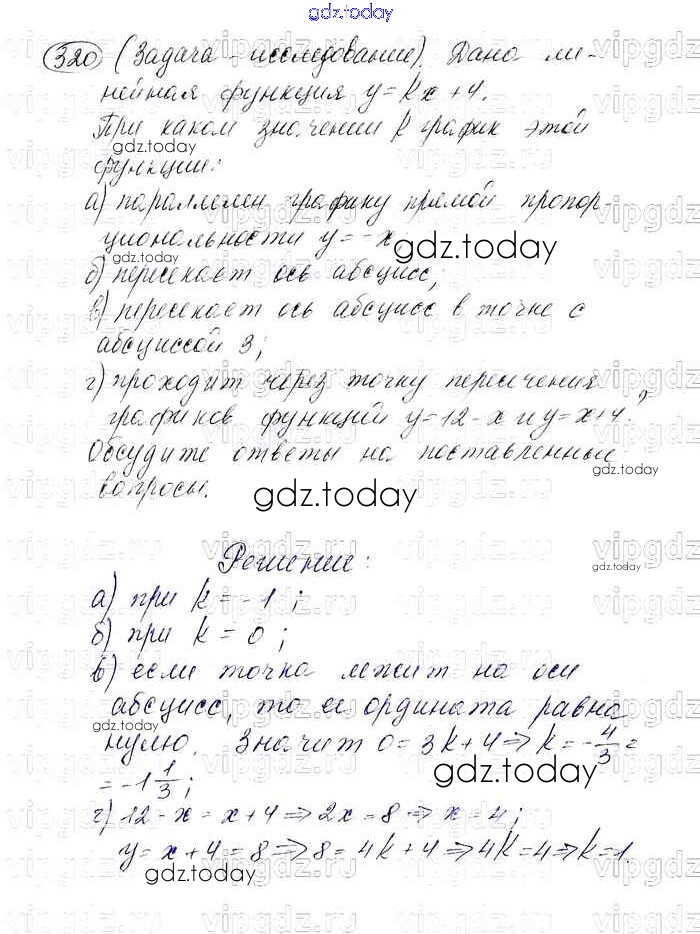 gdz.today
320 (Задача - исследование). Дана ли-
нейная функция y = kx + 4.
При каком значении k график этой
gdz.today
функции:
а) параллелен графику прямой пропор-
циональности y = -x;
gdz.today
б) пересекает ось абсцисс;
в) пересекает ось абсцисс в точке с
абсциссой 3;
г) проходит через точку пересечения
графиков функций y = 12 - x и y = x + 4?
Обсудите ответы на поставленные
gdz.today
вопросы.
gdz.today
Решение:
gdz.today
а) при k = -1;
б) при k = 0;
в) если точка лежит на оси
абсцисс, то ее ордината равна
gdz.today
нулю. Значит 0 = 3k + 4 ⇒ k = -4/3 =
= -1 1/3;
gdz.today
г) 12 - x = x + 4 ⇒ 2x = 8 ⇒ x = 4;
y = x + 4 = 8 ⇒ 8 = 4k + 4 ⇒ 4k = 4 ⇒ k = 1.
gdz.today